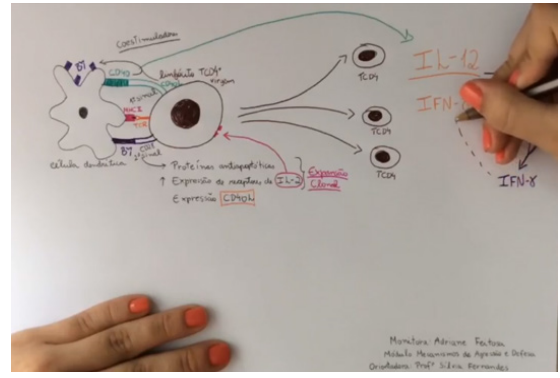 Coestimuladora
B7
CD40
linfócito TCD4+
virgem
sinal
MHC II
TCR
B7
CD28
sinal
Célula dendrítica
→ Proteínas antiapoptóticas
↑ Expressão de receptores de IL-2
Expressão CD40L
Expansão
Clonal
TCD4
TCD4
TCD4
IL-12
IFN-
IFN-γ
Monitora: Adriane Feitosa
Módulo Mecanismos de Agressão e Defesa
Orientadora: Profª Silvia Fernandes